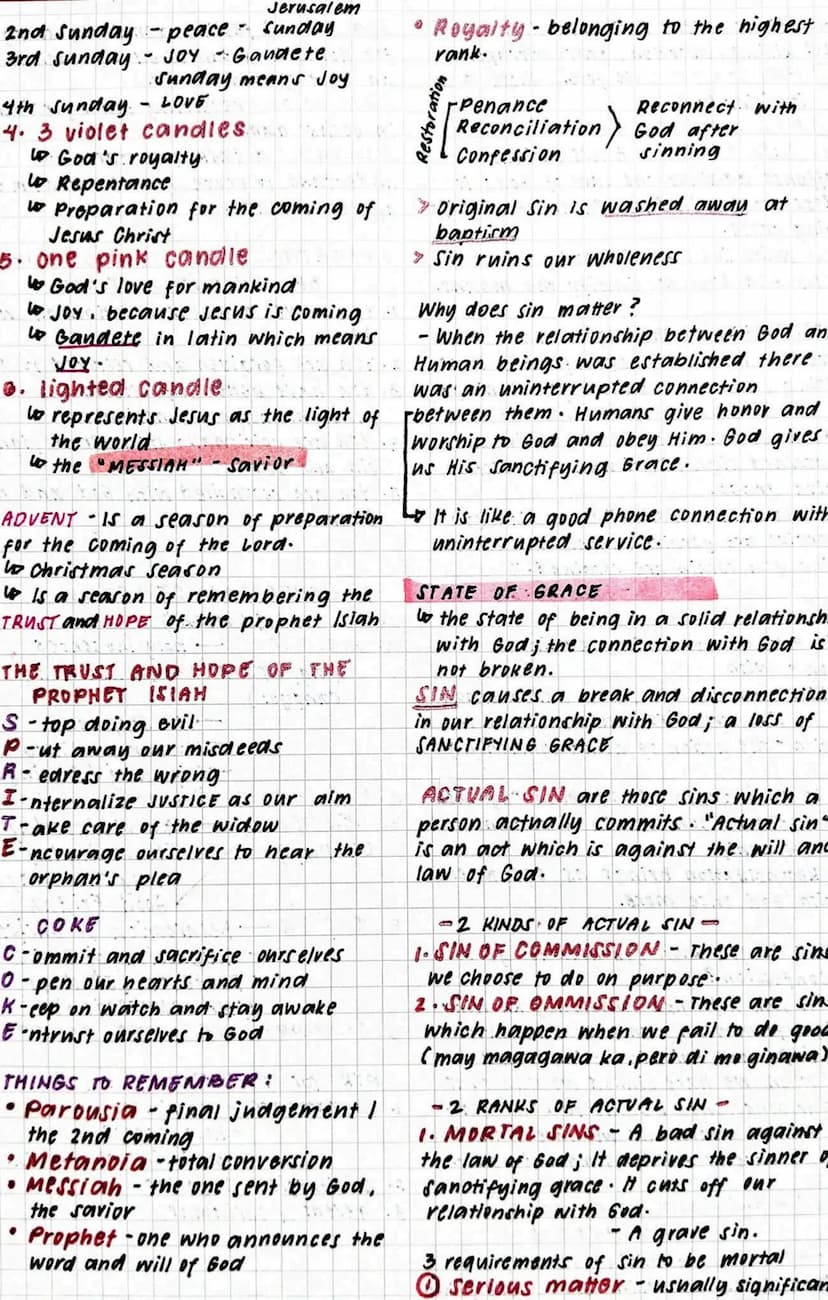 Jerusalem
2nd Sunday - peace - Sunday
3rd Sunday - JOY - Gaudete
Sunday means Joy
4th Sunday - LOVE
4. 3 violet candles
↳ God's royalty
↳ Repentance
↳ Preparation for the coming of
Jesus Christ
5. one pink candle
↳ God's love for mankind
↳ Joy, because Jesus is coming
↳ Gaudete in latin which means
JOY.
6. lighted candle
↳ represents Jesus as the light of
the world
↳ the "MESSIAH" - savior
ADVENT - Is a season of preparation
for the coming of the Lord.
↳ Christmas season
↳ Is a season of remembering the
TRUST and HOPE of the prophet Isiah
THE TRUST AND HOPE OF THE
PROPHET ISIAH
S - top doing evil
P - ut away our misdeeds
R - edress the wrong
I - nternalize JUSTICE as our aim
T - ake care of the widow
E - ncourage ourselves to hear the
orphan's plea
COKE
C - ommit and sacrifice ourselves
O - pen our hearts and mind
K - eep on watch and stay awake
E - ntrust ourselves to God
THINGS TO REMEMBER:
• Parousia - final judgement /
the 2nd coming
• Metanoia - total conversion
• Messiah - the one sent by God,
the savior
• Prophet - one who announces the
word and will of God
• Royalty - belonging to the highest
rank.
Restoration
Penance
Reconciliation
Confession
Reconnect with
God after
sinning
> Original Sin is washed away at
baptism
> Sin ruins our wholeness
Why does sin matter?
- When the relationship between God an
Human beings was established there
was an uninterrupted connection
between them. Humans give honor and
worship to God and obey Him. God gives
us His Sanctifying Grace.
↳ It is like a good phone connection with
uninterrupted service.
STATE OF GRACE
↳ the state of being in a solid relationsh
with God; the connection with God is
not broken.
SIN causes a break and disconnection
in our relationship with God; a loss of
SANCTIFYING GRACE
ACTUAL SIN are those sins which a
person actually commits. "Actual sin"
is an act which is against the will and
law of God.
- 2 KINDS OF ACTUAL SIN -
1. SIN OF COMMISSION - These are sins
we choose to do on purpose.
2. SIN OF OMMISSION - These are sin
which happen when we fail to do good
(may magagawa ka, pero di mo ginawa)
- 2 RANKS OF ACTUAL SIN -
1. MORTAL SINS - A bad sin against
the law of God; It deprives the sinner o
sanctifying grace. It cuts off our
relationship with God.
- A grave sin.
3 requirements of sin to be mortal
① Serious matter - usually significan